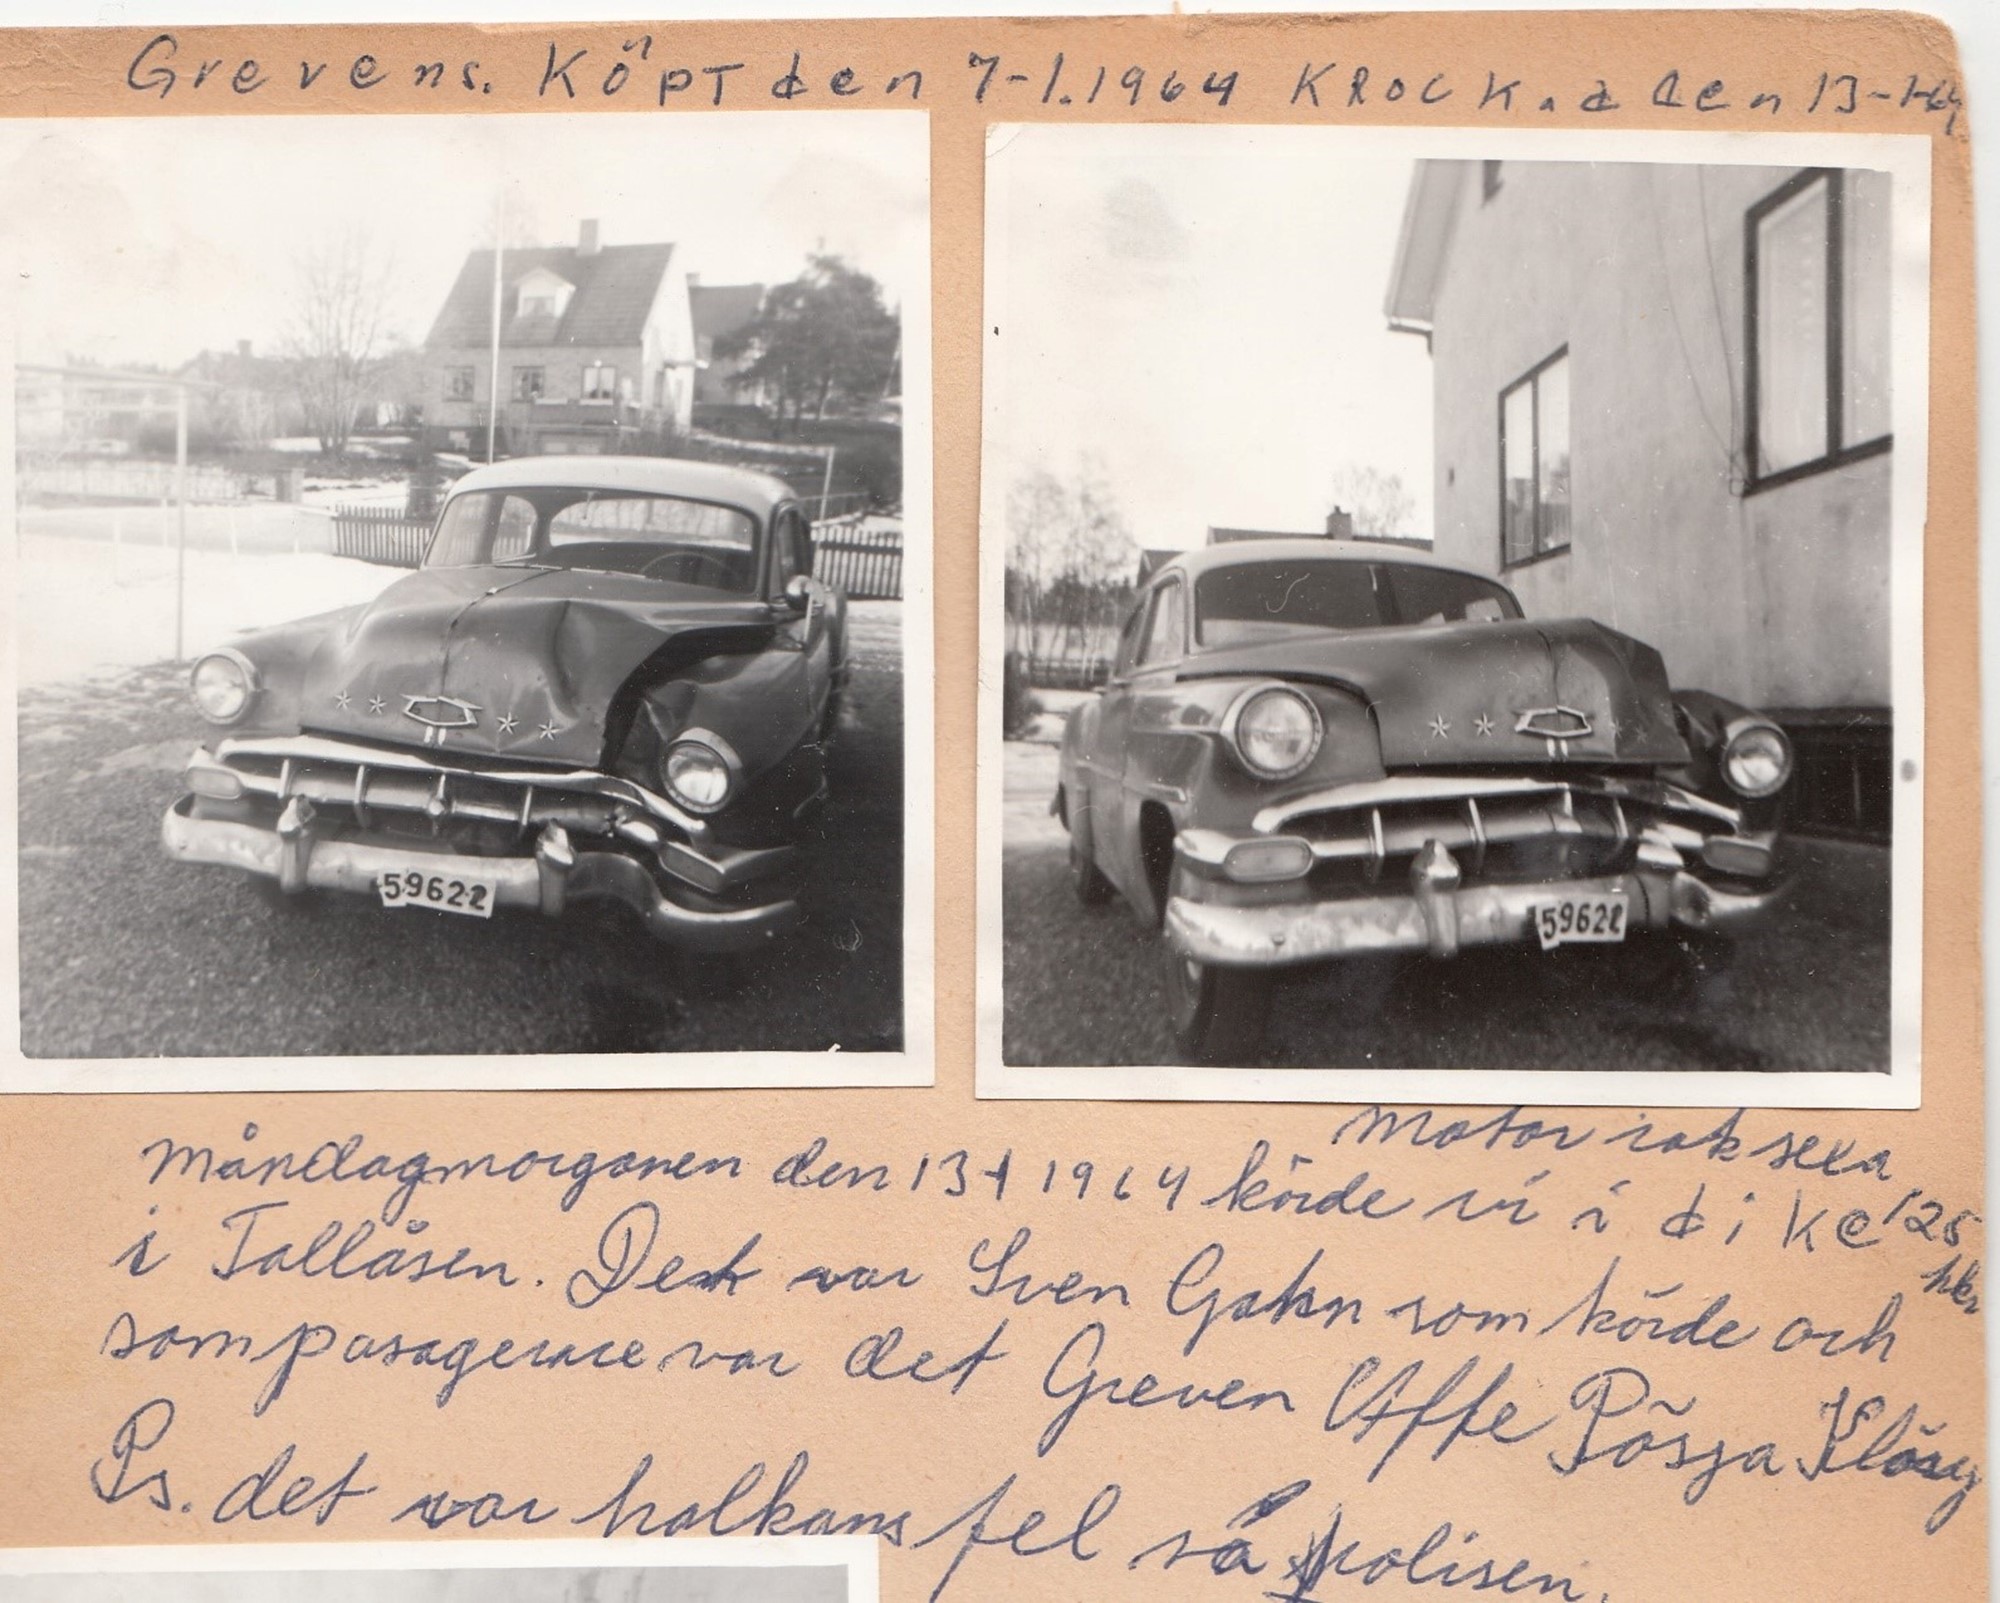 Grevens. Köpt den 7-1.1964 KROCK.a den 13-1-64
59622
59622
Motor rak sexa
125 hkr
Måndagmorgonen den 13-1 1964 körde vi i dike
i Tallåsen. Det var Sven Gahn som körde och
som pasagerare var det Greven Uffe Pösja
Ps. det var halkans fel sa polisen.